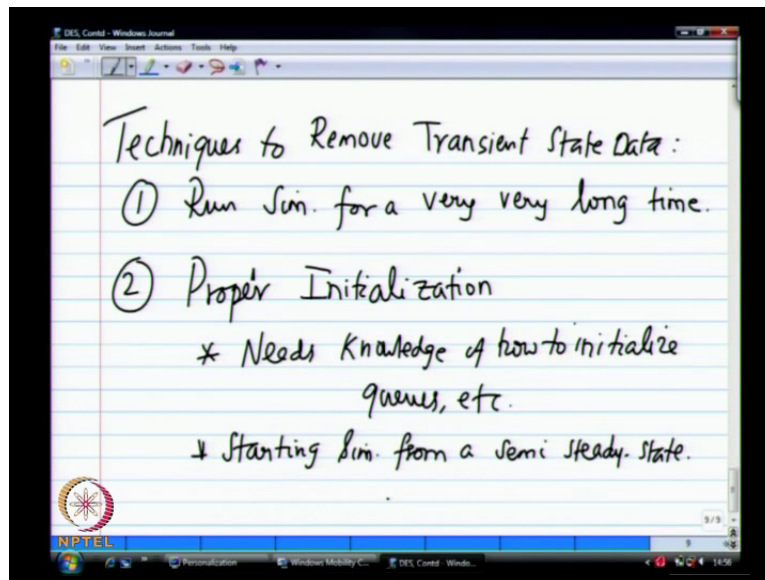 DES, Contd - Windows Journal
File Edit View Insert Actions Tools Help
Techniques to Remove Transient State Data:
① Run Sim. for a very very long time.
② Proper Initialization
* Needs Knowledge of how to initialize
queues, etc.
* Starting Sim. from a semi steady-state.
9/9
NPTEL
9
Personalization
Windows Mobility C...
DES, Contd - Windo...
14:56